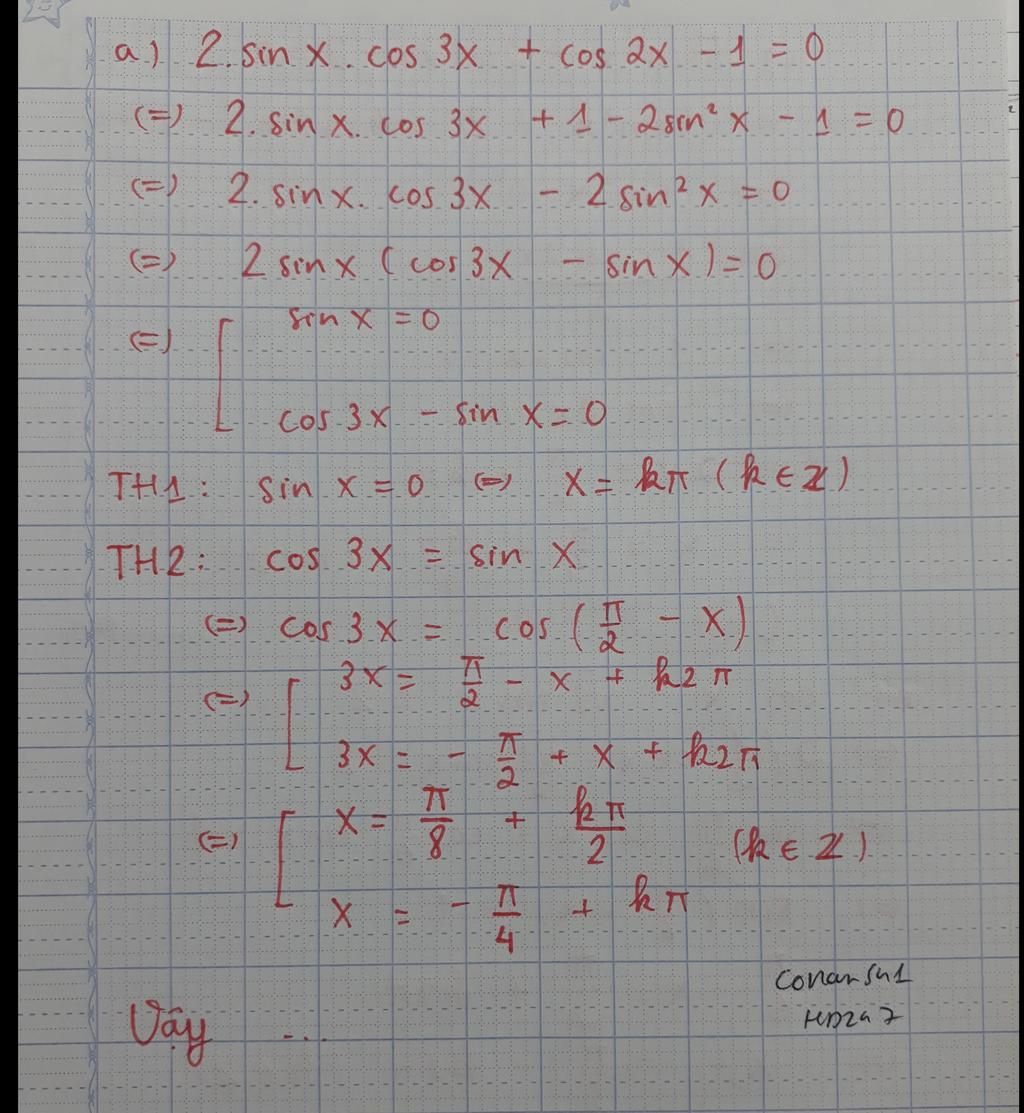 a) 2.sin x . cos 3x + cos 2x - 1 = 0
(=) 2. sin x. cos 3x + 1 - 2sin² x - 1 = 0
(=) 2. sin x. cos 3x - 2 sin² x = 0
(=) 2 sin x ( cos 3x - sin x ) = 0
(=) [ sin x = 0
cos 3x - sin x = 0
TH1: sin x = 0 (=) x = kπ (k ∈ Z)
TH2: cos 3x = sin x
(=) cos 3x = cos (π/2 - x)
(=) [ 3x = π/2 - x + k2π
3x = - π/2 + x + k2π
(=) [ x = π/8 + kπ/2 (k ∈ Z)
x = - π/4 + kπ
Vậy ...